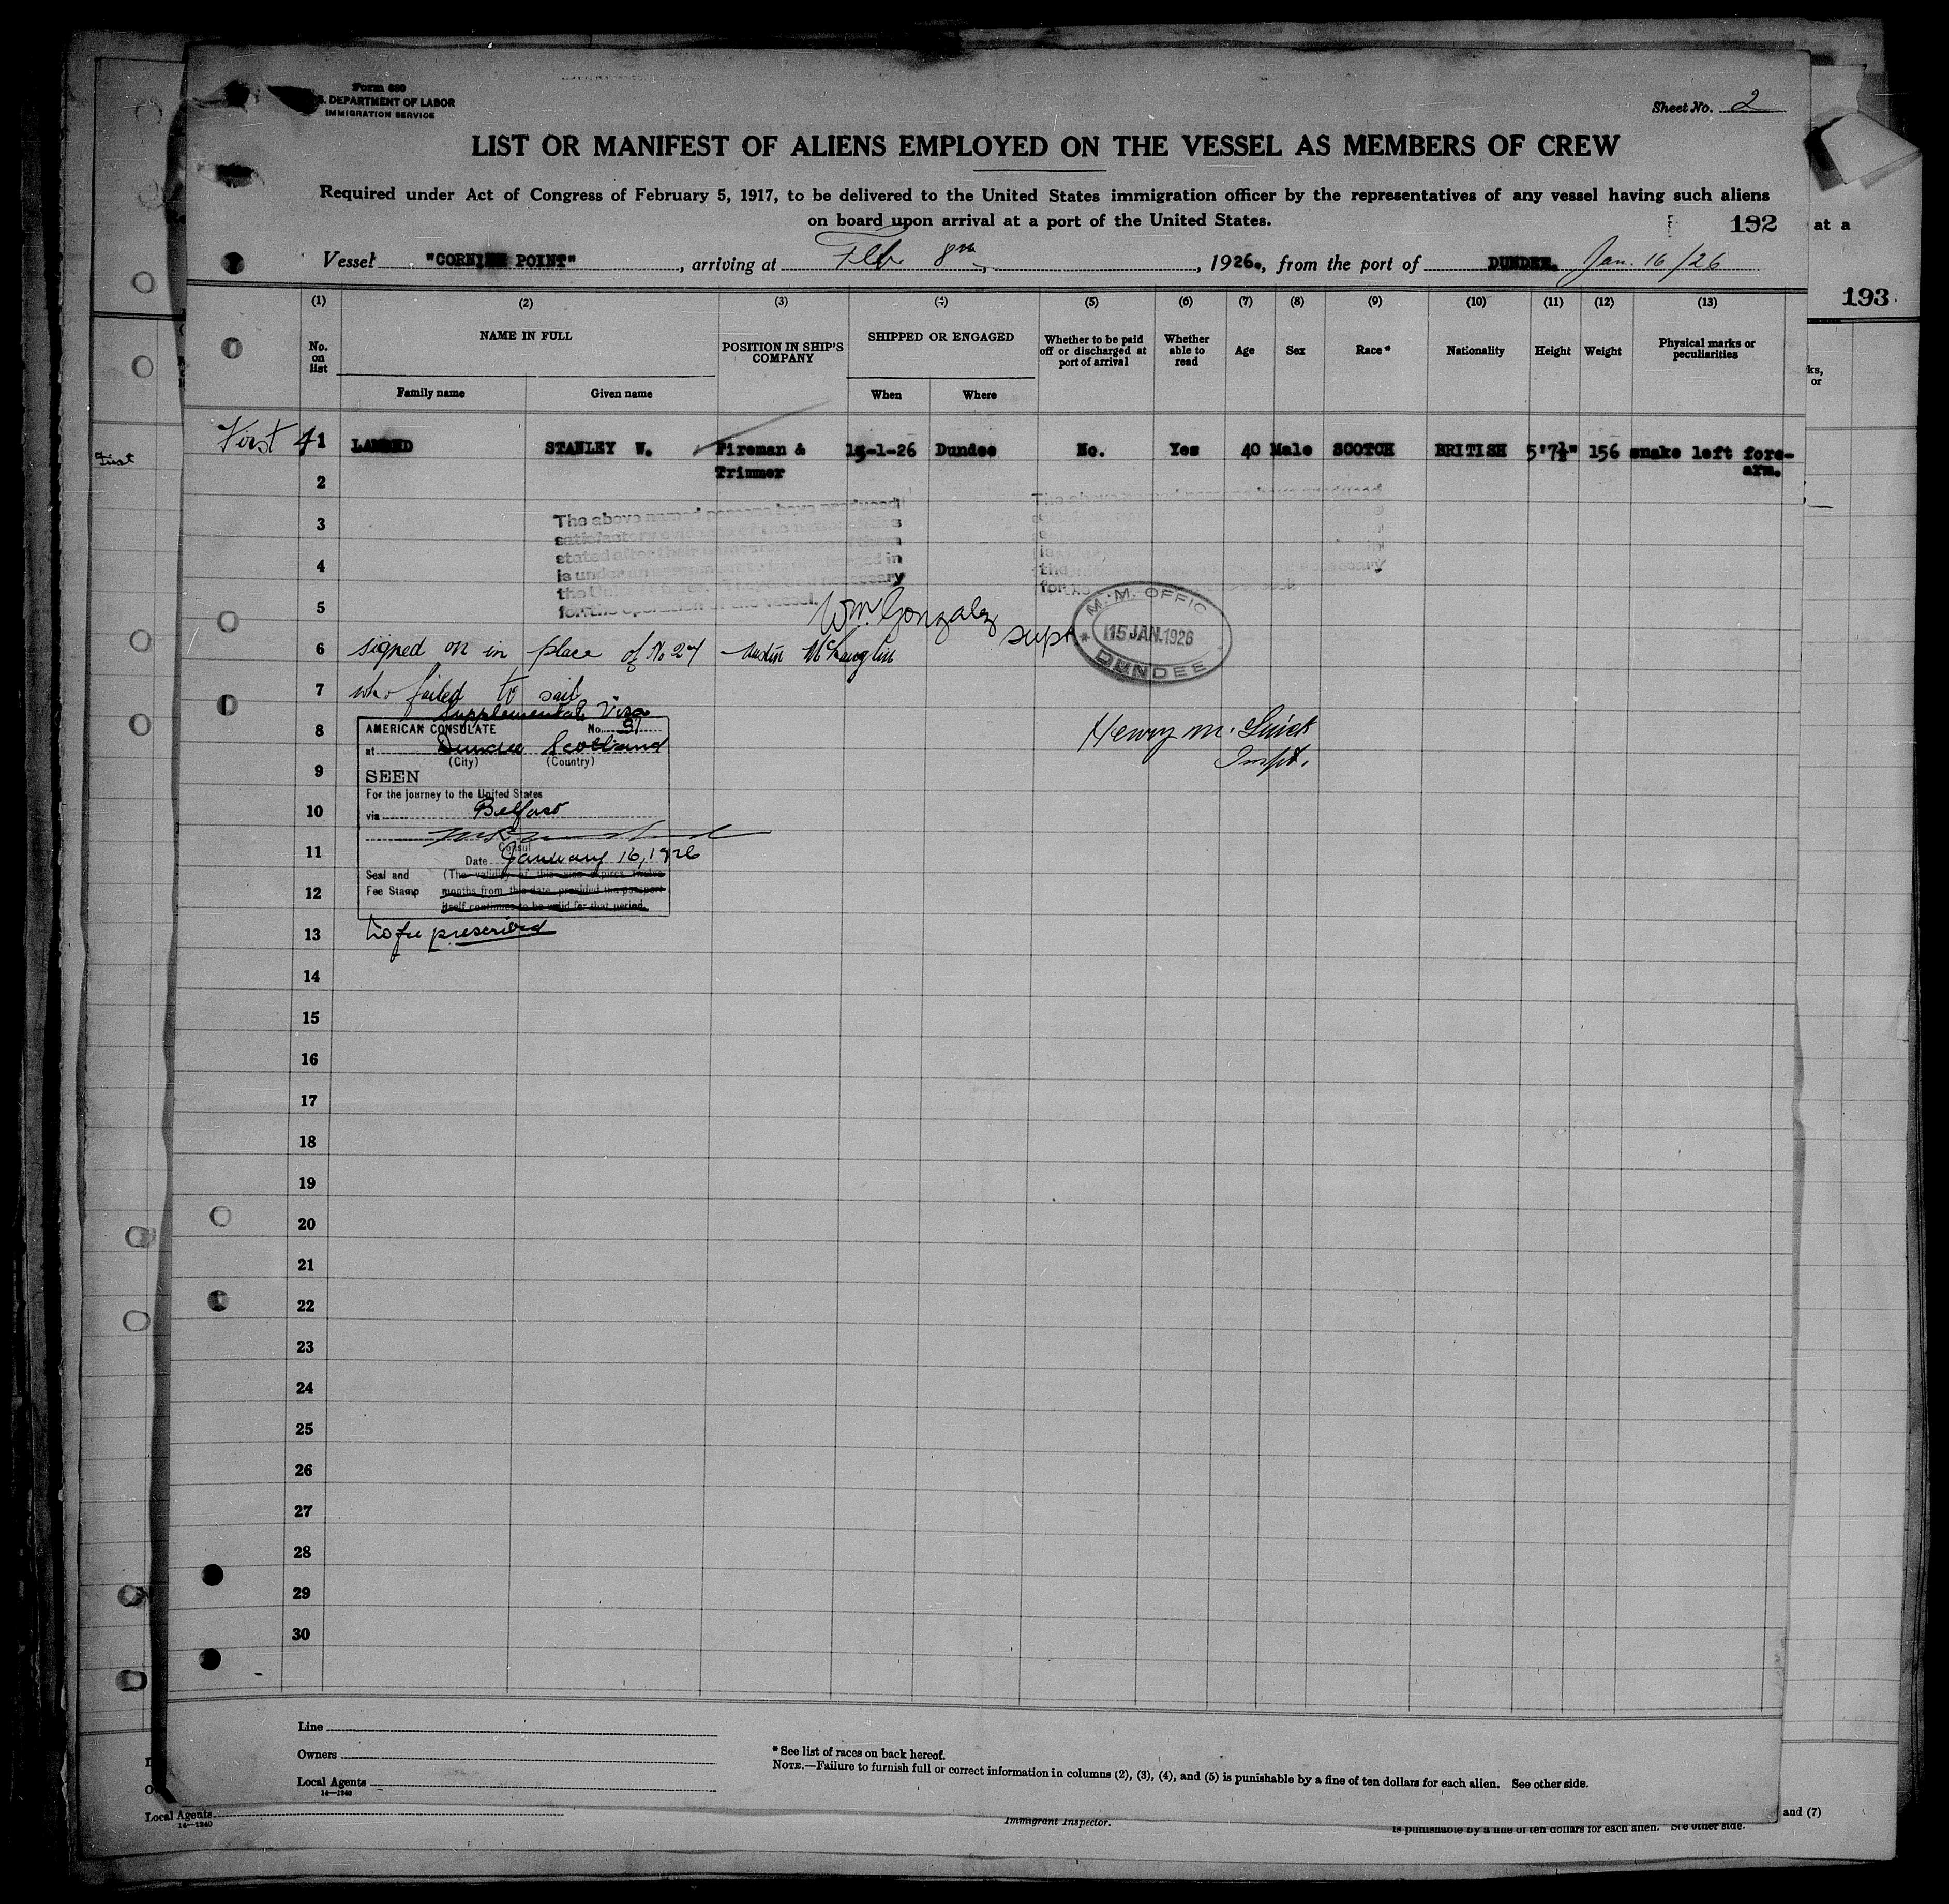 Form 680
S. DEPARTMENT OF LABOR
IMMIGRATION SERVICE
Sheet No. 2
LIST OR MANIFEST OF ALIENS EMPLOYED ON THE VESSEL AS MEMBERS OF CREW
Required under Act of Congress of February 5, 1917, to be delivered to the United States immigration officer by the representatives of any vessel having such aliens
on board upon arrival at a port of the United States.
192
at a
Vessel "CORNISH POINT", arriving at Feb 8th, 1926., from the port of DUNDEE. Jan. 16/26
193
(1) (2) (3) (4) (5) (6) (7) (8) (9) (10) (11) (12) (13)
No. on list NAME IN FULL POSITION IN SHIP'S COMPANY SHIPPED OR ENGAGED Whether to be paid off or discharged at port of arrival Whether able to read Age Sex Race* Nationality Height Weight Physical marks or peculiarities
ks,
or
Family name Given name When Where
First 41 STANLEY W. Fireman & 15-1-26 Dundee No. Yes 40 Male SCOTCH BRITISH 5'7½" 156 snake left fore-
First
2 Trimmer arm.
The above named persons have produced
satisfactory evidence of the nationalities
3
stated after their names
4
is under
the United States.
necessary
for the operation of the vessel.
5
Wm. Gonzalez
Supt
M.M. OFFIC
15 JAN. 1926
DUNDEE
6 signed on in place of No 27 Austin McLaughlin
7 who failed to sail
Supplemental Visa
8 AMERICAN CONSULATE No. 31
at Dundee Scotland
(City) (Country)
Henry M.
Inspt.
9 SEEN
For the journey to the United States
10 via Belfast
11 Consul
Date January 16, 1926
Seal and (The validity of this visa expires twelve
12 Fee Stamp months from this date provided the passport
itself continues to be valid for that period.
13 No fee prescribed
14
15
16
17
18
19
20
21
22
23
24
25
26
27
28
29
30
Line
Owners
* See list of races on back hereof.
NOTE.—Failure to furnish full or correct information in columns (2), (3), (4), and (5) is punishable by a fine of ten dollars for each alien. See other side.
Local Agents
14—1240
Local Agents
14—1240
Immigrant Inspector.
and (7)
is punishable by a fine of ten dollars for each alien. See other side.